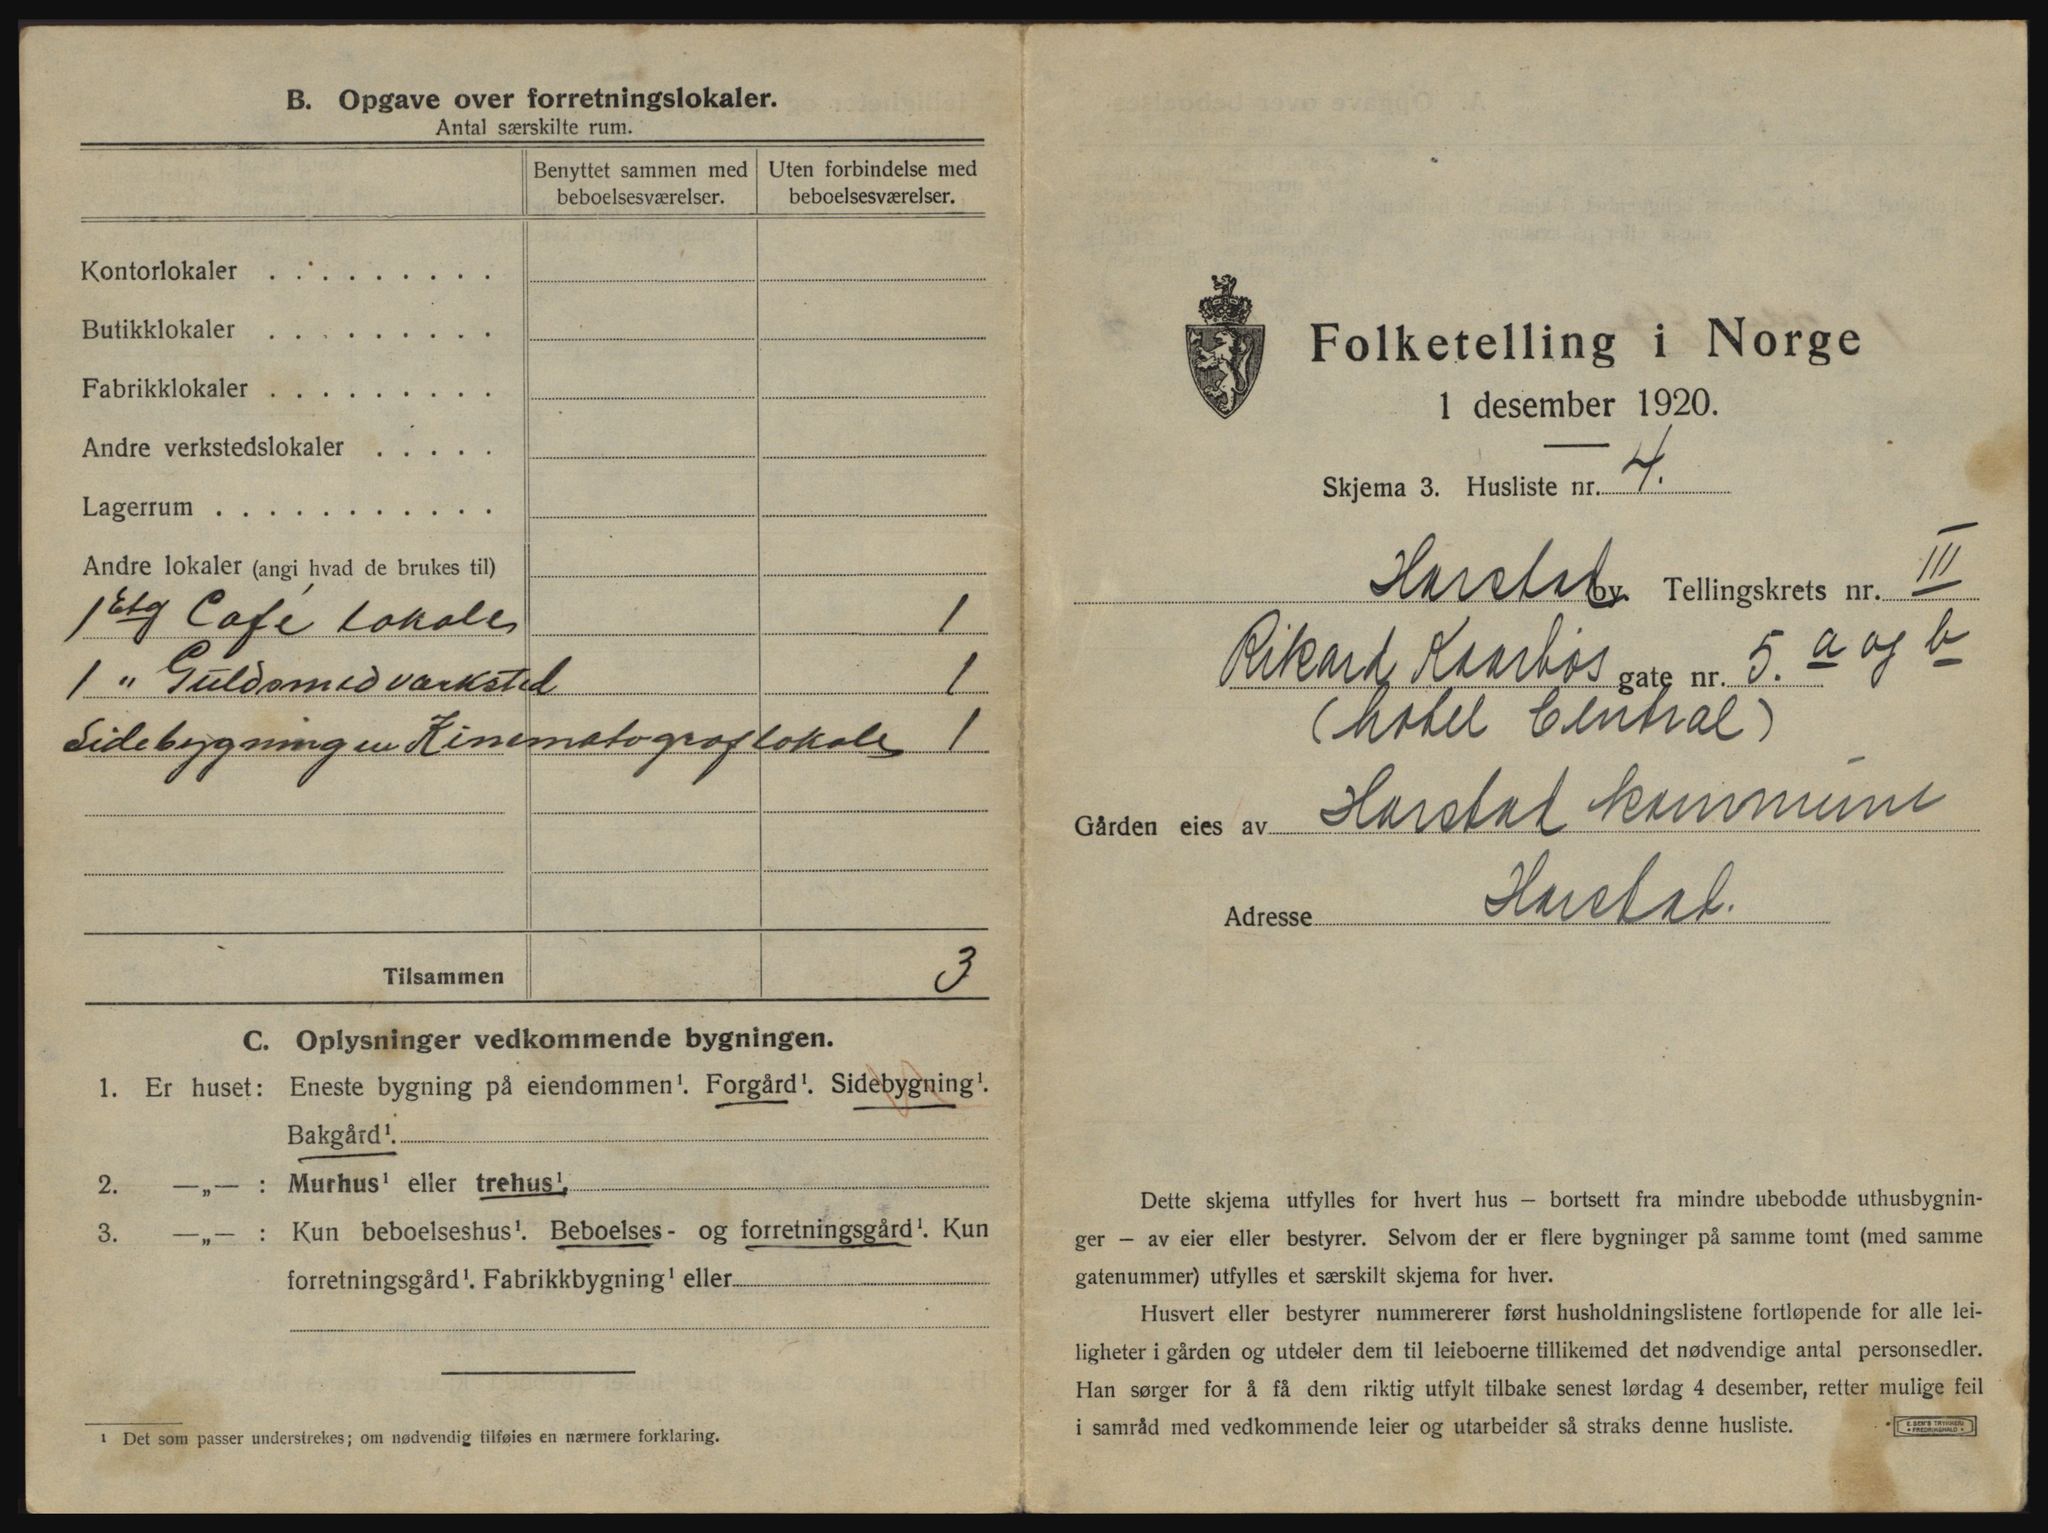 B. Opgave over forretningslokaler.
Antal særskilte rum.
Benyttet sammen med beboelsesværelser.
Uten forbindelse med beboelsesværelser.
Kontorlokaler . . . . . . . . .
Butikklokaler . . . . . . . . .
Fabrikklokaler . . . . . . . . .
Andre verkstedslokaler . . . . .
Lagerrum . . . . . . . . . . .
Andre lokaler (angi hvad de brukes til)
1 Etg Café lokale 1
1 " Guldsmedværksted 1
Sidebygningen Kinematograflokale 1
Tilsammen 3
C. Oplysninger vedkommende bygningen.
1. Er huset: Eneste bygning på eiendommen¹. Forgård¹. Sidebygning¹.
Bakgård¹.
2. —„— : Murhus¹ eller trehus¹.
3. —„— : Kun beboelseshus¹. Beboelses- og forretningsgård¹. Kun
forretningsgård¹. Fabrikkbygning¹ eller
¹ Det som passer understrekes; om nødvendig tilføies en nærmere forklaring.
Folketelling i Norge
1 desember 1920.
Skjema 3. Husliste nr. 4.
Harstad by. Tellingskrets nr. III
Rikard Kaarbøs gate nr. 5. a og b
(hotel Central)
Gården eies av Harstad kommune
Adresse Harstad.
Dette skjema utfylles for hvert hus — bortsett fra mindre ubebodde uthusbygnin-
ger — av eier eller bestyrer. Selvom der er flere bygninger på samme tomt (med samme
gatenummer) utfylles et særskilt skjema for hver.
Husvert eller bestyrer nummererer først husholdningslistene fortløpende for alle lei-
ligheter i gården og utdeler dem til leieboerne tillikemed det nødvendige antal personsedler.
Han sørger for å få dem riktig utfylt tilbake senest lørdag 4 desember, retter mulige feil
i samråd med vedkommende leier og utarbeider så straks denne husliste.
E. SEM'S TRYKKERI
FREDRIKSHALD